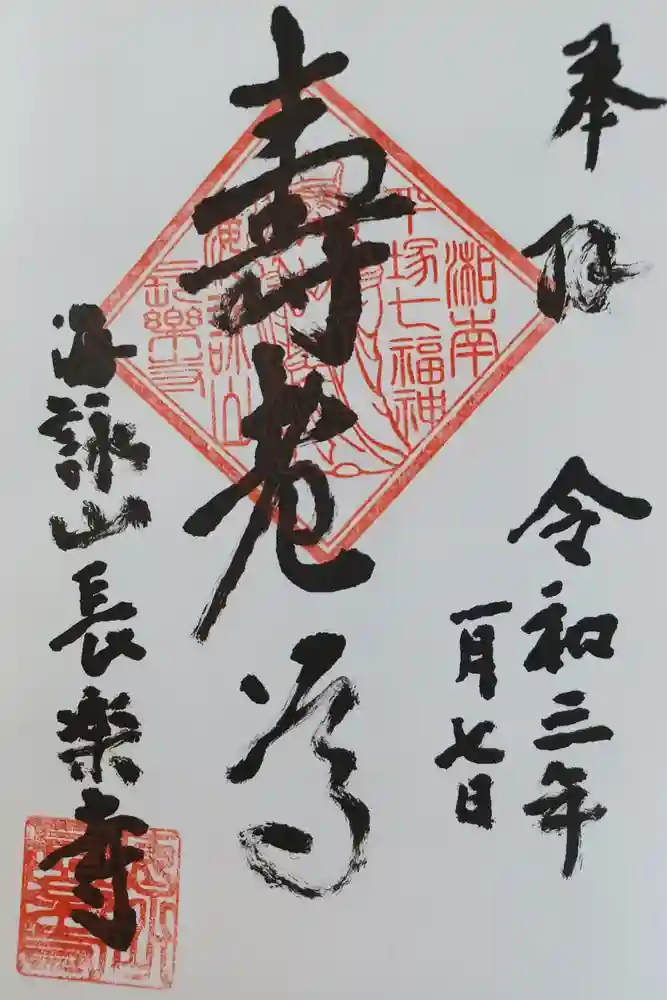 奉拝
令和三年
一月七日
湘南
平塚七福神
寿老尊
海詠山
長樂寺
海詠山長楽寺